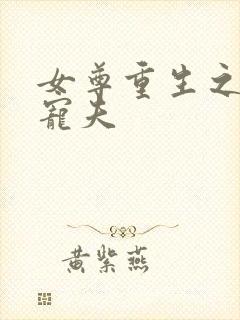 女尊重生之
寵夫
黄紫燕